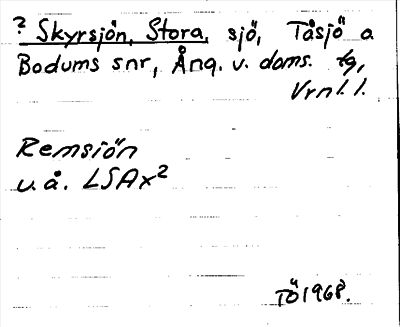 ? Skyrsjön, Stora, sjö, Tåsjö o
Bodums snr, Ång. v. doms. tg,
Vrnl. l.
Remsjön
u.å. LSAx²
TÖ 1968.